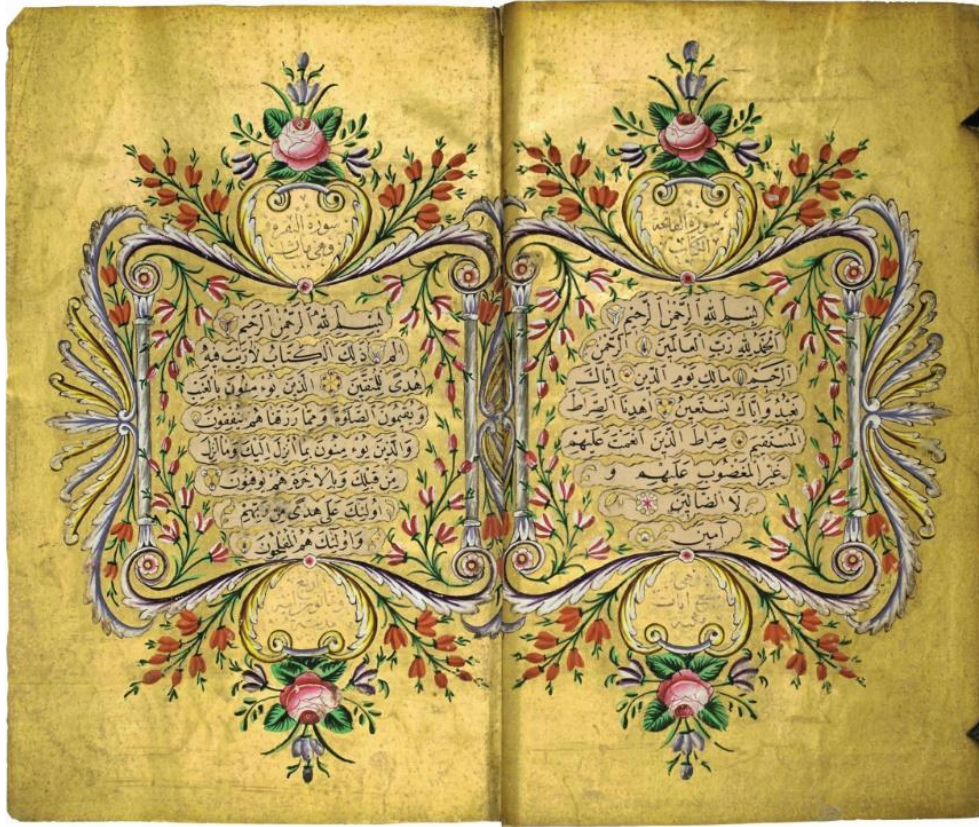 سورة الفاتحة
الكتاب
بِسْمِ اللهِ الرَّحْمٰنِ الرَّحِيمِ
اَلْحَمْدُ لِلّٰهِ رَبِّ الْعَالَمِينَ الرَّحْمٰنِ
الرَّحِيمِ مَالِكِ يَوْمِ الدِّينِ اِيَّاكَ
نَعْبُدُ وَاِيَّاكَ نَسْتَعِينُ اِهْدِنَا الصِّرَاطَ
الْمُسْتَقِيمَ صِرَاطَ الَّذِينَ اَنْعَمْتَ عَلَيْهِمْ
غَيْرِ الْمَغْضُوبِ عَلَيْهِمْ وَ
لَا الضَّالِّينَ
آمين
وهي
سبع ايات
سورة البقرة
وهي مائت
بِسْمِ اللهِ الرَّحْمٰنِ الرَّحِيمِ
الم ذٰلِكَ الْكِتَابُ لَا رَيْبَ فِيهِ
هُدًى لِلْمُتَّقِينَ اَلَّذِينَ يُؤْمِنُونَ بِالْغَيْبِ
وَيُقِيمُونَ الصَّلٰوةَ وَمِمَّا رَزَقْنَاهُمْ يُنْفِقُونَ
وَالَّذِينَ يُؤْمِنُونَ بِمَا اُنْزِلَ اِلَيْكَ وَمَا اُنْزِلَ
مِنْ قَبْلِكَ وَبِالْاٰخِرَةِ هُمْ يُوقِنُونَ
اُولٰئِكَ عَلٰى هُدًى مِنْ رَبِّهِمْ
وَاُولٰئِكَ هُمُ الْمُفْلِحُونَ